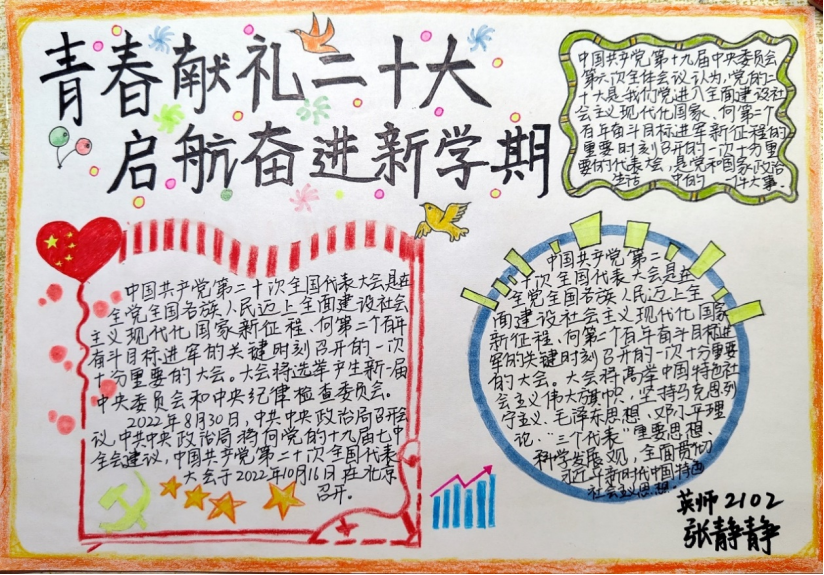 青春献礼二十大
启航奋进新学期
中国共产党第十九届中央委员会
第六次全体会议认为,党的二
十大是我们党进入全面建设社
会主义现代化国家、向第二个
百年奋斗目标进军新征程的
重要时刻召开的一次十分重
要的代表大会,是党和国家政治
生活中的一件大事.
中国共产党第二十次全国代表大会是在
全党全国各族人民迈上全面建设社会
主义现代化国家新征程、向第二个百年
奋斗目标进军的关键时刻召开的一次
十分重要的大会。大会将选举产生新一届
中央委员会和中央纪律检查委员会。
2022年8月30日,中共中央政治局召开会
议,中共中央政治局将向党的十九届七中
全会建议,中国共产党第二十次全国代表
大会于2022年10月16日在北京
召开.
中国共产党第二
十次全国代表大会是在
全党全国各族人民迈上全
面建设社会主义现代化国家
新征程、向第二个百年奋斗目标进
军的关键时刻召开的一次十分重要
的大会。大会将高举中国特色社
会主义伟大旗帜,坚持马克思列
宁主义、毛泽东思想、邓小平理
论、“三个代表”重要思想、
科学发展观,全面贯彻
习近平新时代中国特色
社会主义思想.
英师2102
张静静